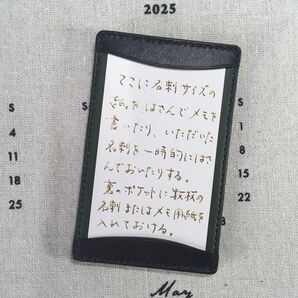 2025
S
4
11
18
25
S
3
10
17
24
31
ここに名刺サイズの
紙をはさんでメモを
書いたり、いただいた
名刺を一時的にはさ
んでおいたりする。
裏のポケットに数枚の
名刺またはメモ用紙を
入れておける。
May